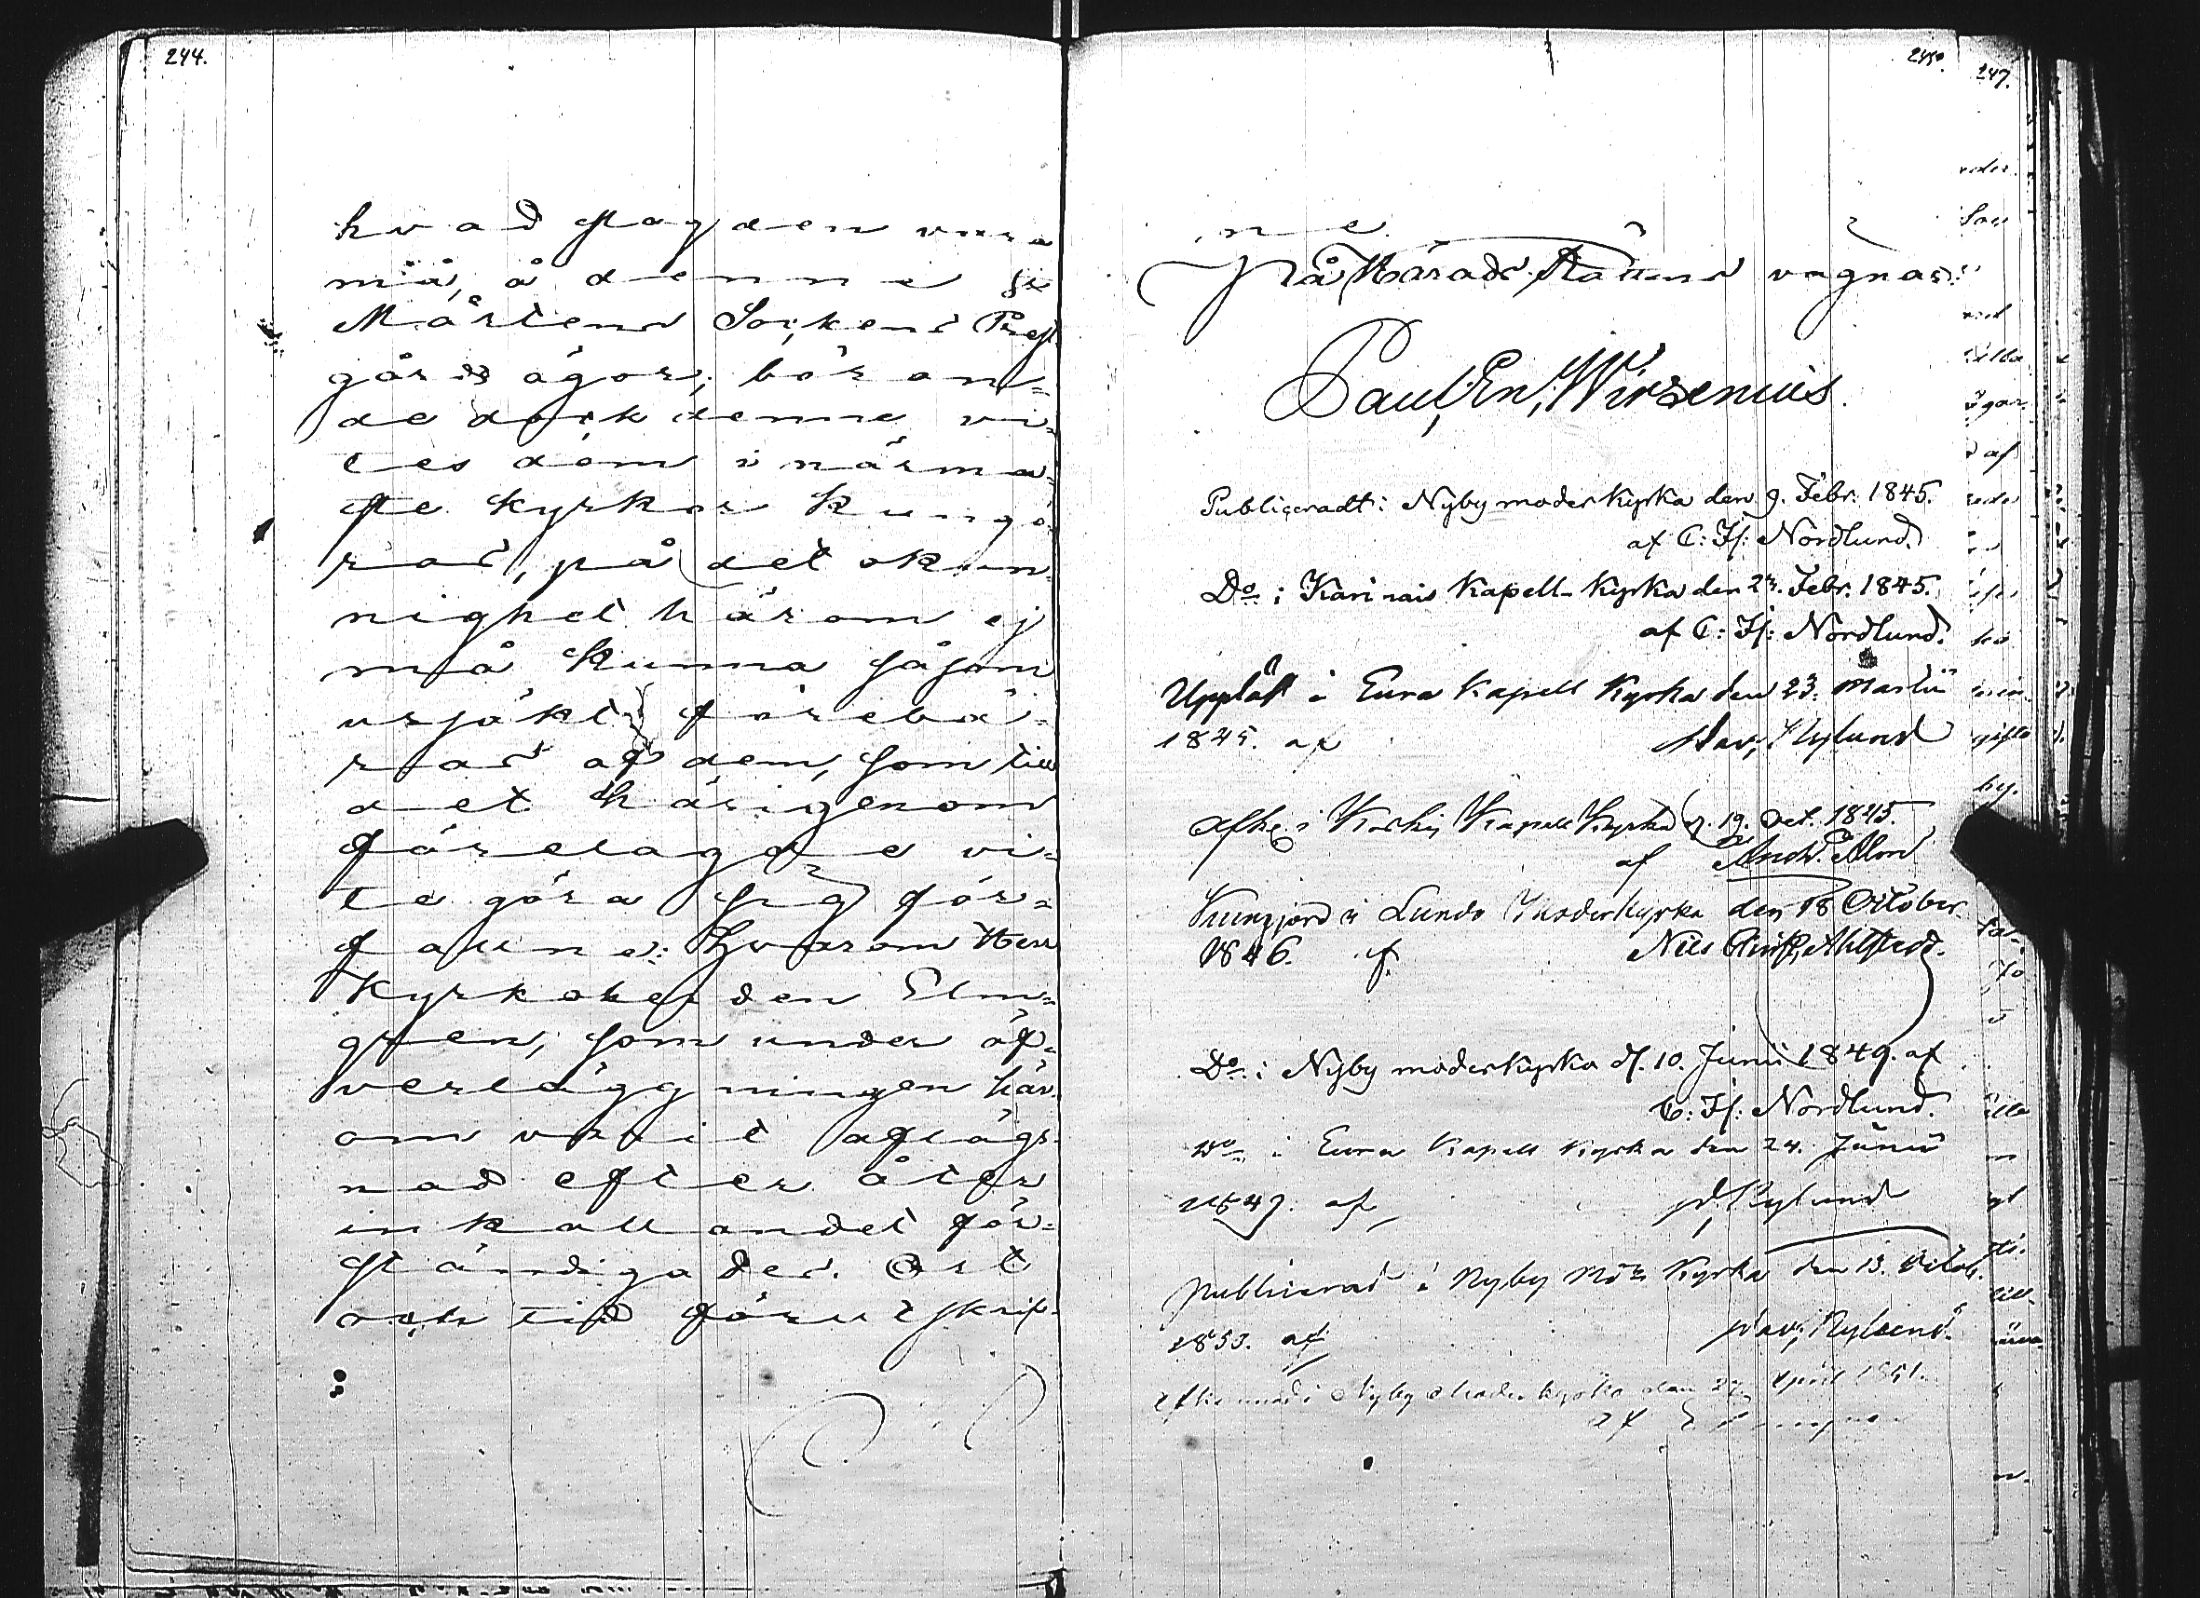 244.
hvad slag den vara
må, å denne S:t
Mårtens Sockens Prest
gårds ägor; böran=
de dock denne vi=
tes dom i närma=
ste kyrkor kungö=
ras, på det okun=
nighet härom ej
må kunna såsom
ursäkt förebä=
ras af dem, som till
det härigenom
förelagde vi=
te göra sig för=
fallne: Hvarom Herr
Kyrkoherden Elm=
gren, som under öf=
verläggningen här=
om varit aflägs=
nad efter åter
inkallandet för=
ständigades. Ort
och tid förutskrif=
245.
ne.
På Härads Rättens vägnar:
Paul En. Wirzenius.
Publiceradt i Nyby moderkyrka den 9. Febr. 1845.
af C: Fj: Nordlund.
Do i Karinais Kapell-Kyrka den 23. Febr. 1845.
af C: Fj: Nordlund.
Uppläst i Eura Kapell Kyrka den 23. Martii
1845. af Dav, Rylund
i Kapell Kyrka d. 19. Oct. 1845.
af
Kungjord i Lundo Moderkyrka den 18 October
1846. af
Do i Nyby moderkyrka d. 10. Junii 1849. af
C: Fj: Nordlund.
Do i Eura Kapell Kyrka den 24. Junii
1849. af D, Rylund
Publicerad i Nyby Mo Kyrka den 13. Octob.
1850. af Dav, Rylund
i Nyby Moder kyrka den 27 April 1851
af
247.